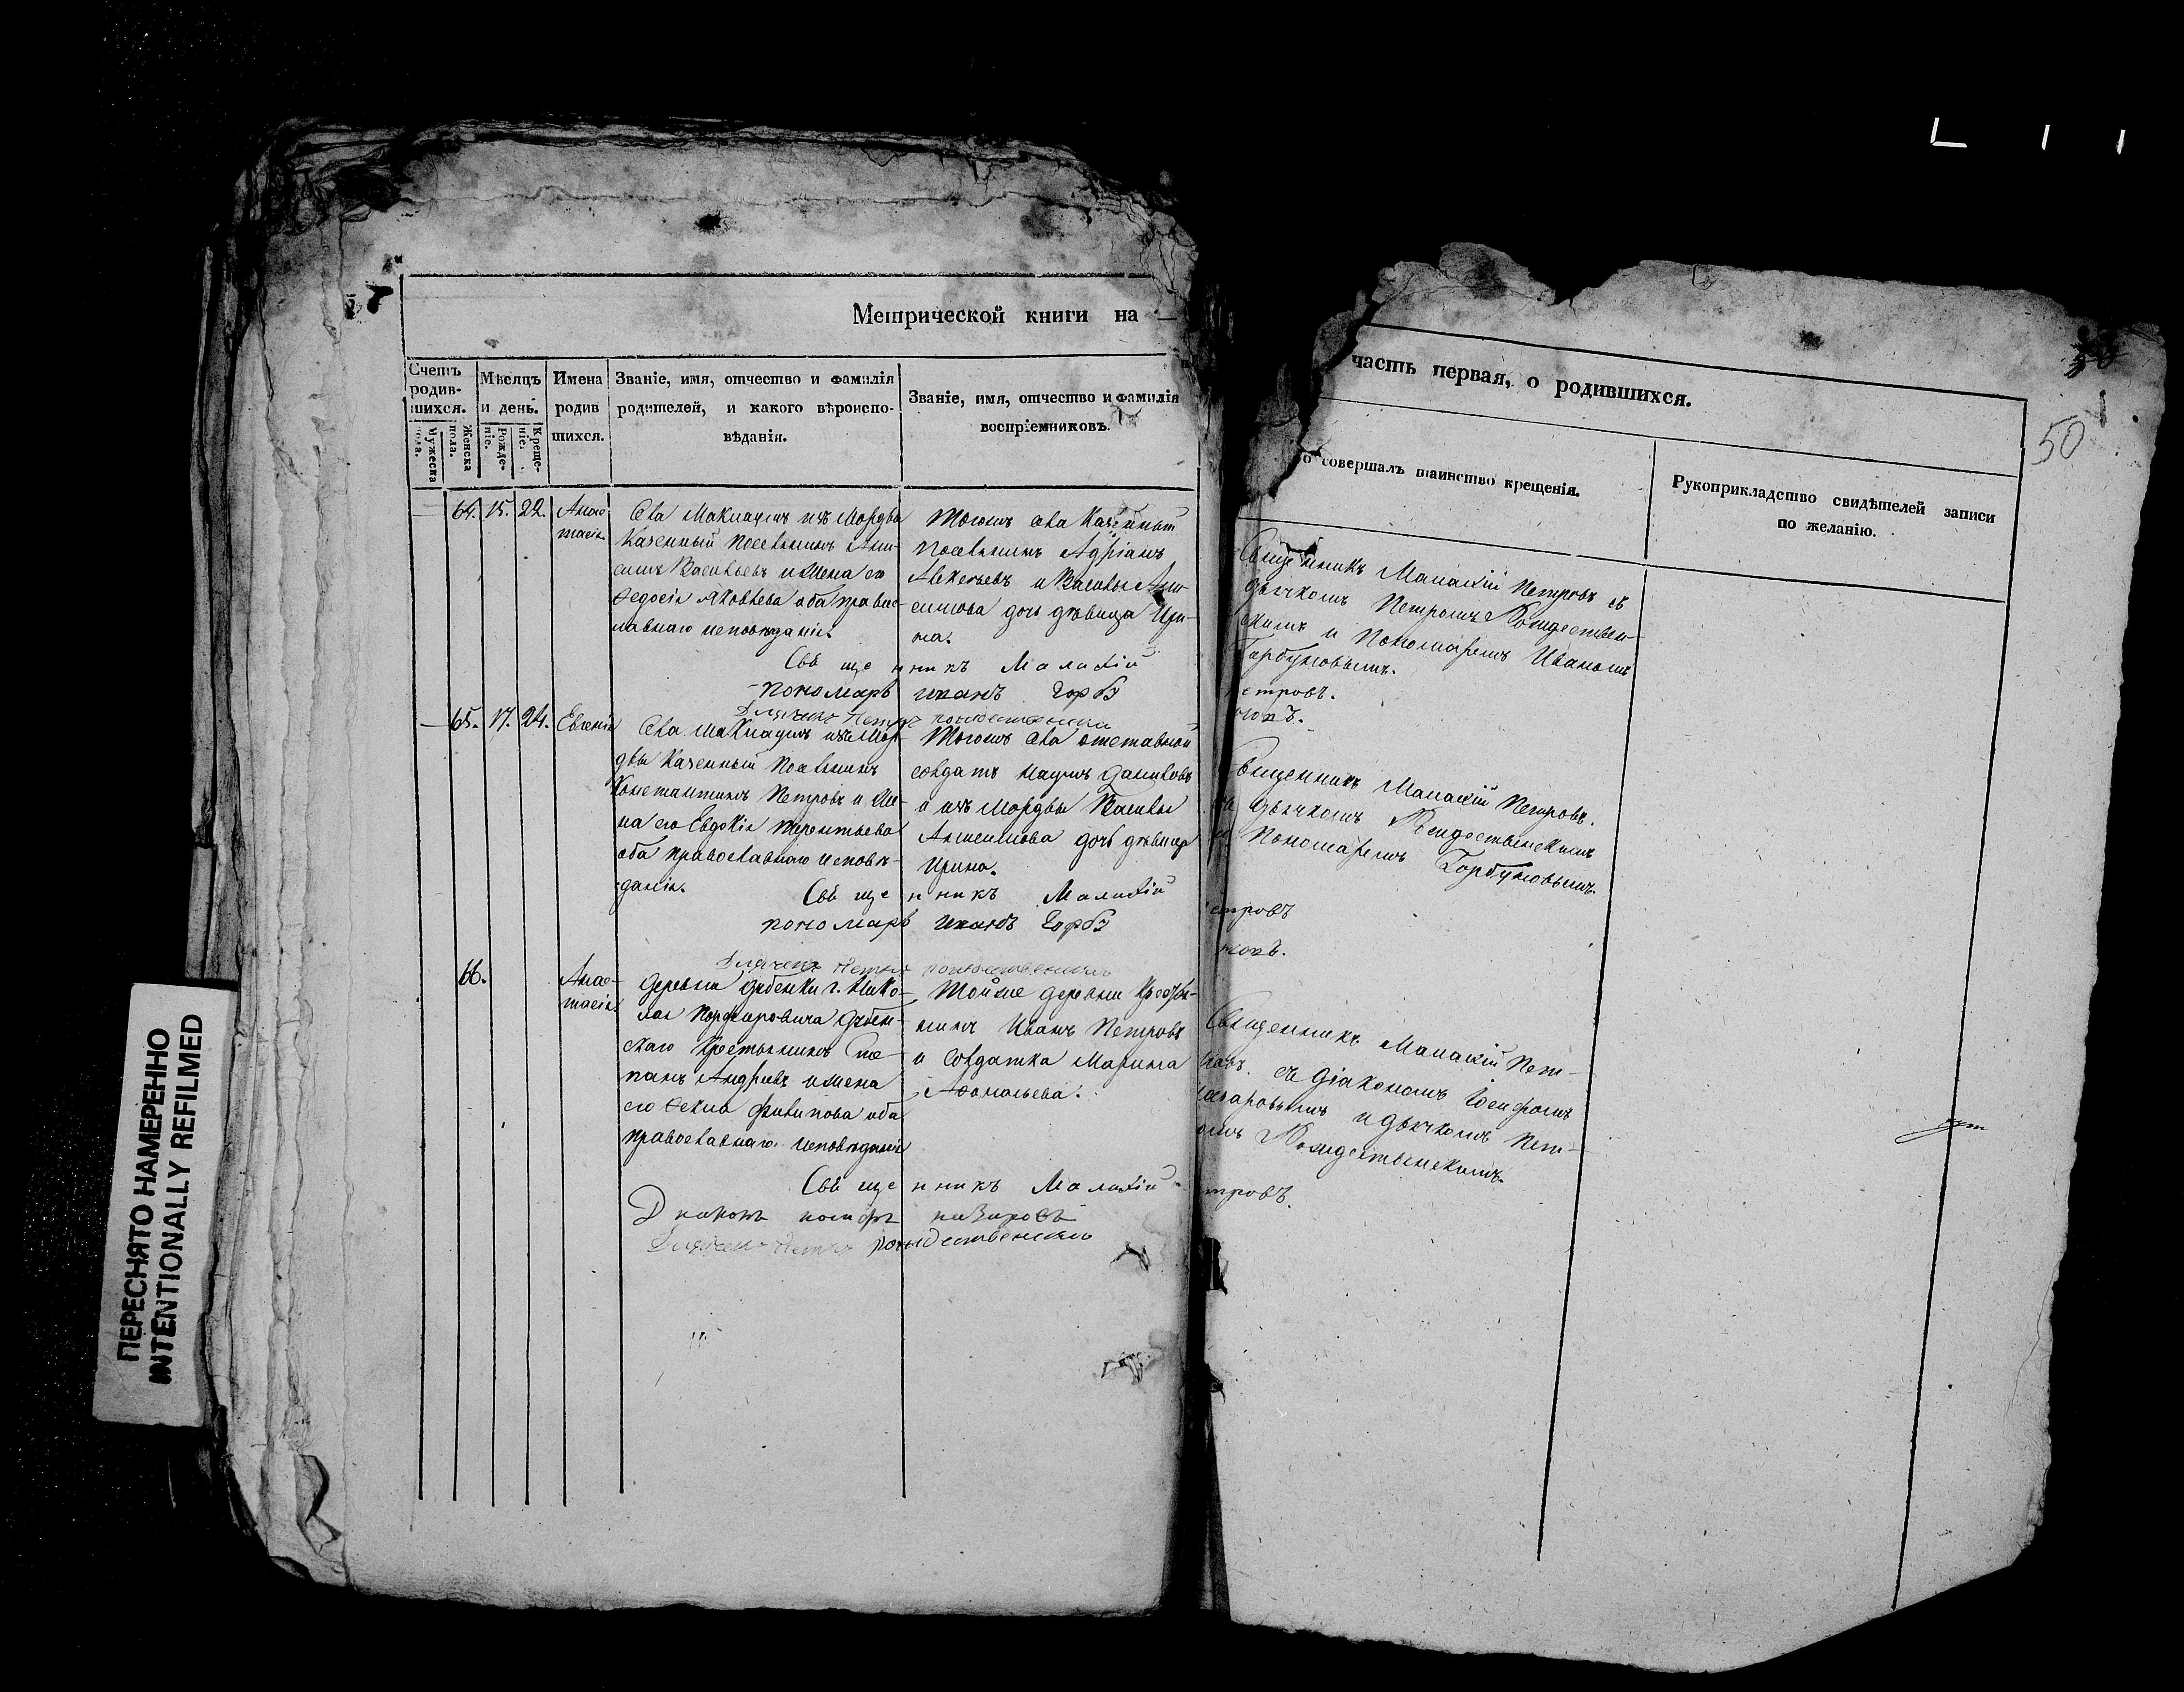 Метрической книги на
часть первая, о родившихся.
50
Счетъ родив-шихся.
Мужеска пола.
Женска пола.
Мѣсяцъ и день.
Рожде-ніе.
Креще-ніе.
Имена родив шихся.
Званіе, имя, отчество и фамилія
родителей, и какого вѣроиспо-
вѣданія.
Званіе, имя, отчество и фамилія
воспріемниковъ.
совершалъ таинство крещенія.
Рукоприкладство свидѣтелей записи
по желанію.
64. 15. 22. Анас-
тасія
Села Макнаумъ изъ Мордвы
Казенный поселянинъ Ани-
симъ Васильевъ и жена его
Ѳедосія Яковлева оба право-
славнаго исповѣданія.
Тогожъ села Казенный
поселянинъ Адріанъ
Алексѣевъ и Василья Ани-
симова дочь дѣвица Ири-
на.
Священникъ Малахій Петровъ съ
дьячкомъ Петромъ Рождествен-
скимъ и Пономаремъ Иваномъ
Горбуновымъ.
Священникъ Малахій
Петровъ.
пономарь иванъ Горбу
новъ.
Дьячекъ Петръ рождественский
65. 17. 24. Евгенія
Села Макнаумъ изъ Мор-
двы Казенный Поселянинъ
Константинъ Петровъ и же-
на его Евдокія Терентьева
оба православнаго исповѣ-
данія.
Тогожъ села отставной
солдатъ Наумъ Даниловъ
и изъ Мордвы Василья
Анисимова дочь дѣвица
Ирина.
Священникъ Малахій Петровъ.
съ дьячкомъ Рождественскимъ
и Пономаремъ Горбуновымъ.
Священникъ Малахій
Петровъ
пономарь иванъ Горбу
новъ.
Дьячекъ Петръ рождественский
66. Анас-
тасія.
Деревни Дубенки г. Нико-
лая Порфировича Дубен-
скаго Крестьянинъ Сте-
панъ Андреевъ и жена
его Ѳекла Филипова оба
православнаго исповѣданія
Тойже деревни Крестья-
нинъ Иванъ Петровъ
и солдатка Марина
Афонасьева.
Священникъ Малахій Пет-
ровъ. съ діакономъ Іосифомъ
Назаровымъ и дьячкомъ Пет-
ромъ Рождественскимъ.
Священникъ Малахій
Петровъ.
Диаконъ иосифъ назаровъ
Дьячекъ Петръ рождественский
ПЕРЕСНЯТО НАМЕРЕННО
INTENTIONALLY REFILMED